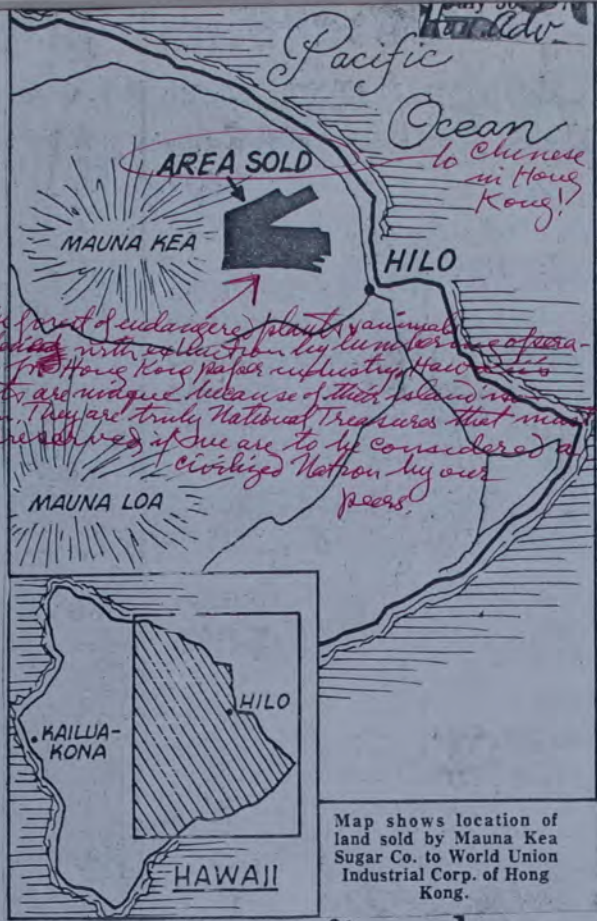 July 30, 197
Hon. Adv.
Pacific
Ocean
AREA SOLD
to Chinese
in Hong
Kong!
MAUNA KEA
HILO
of endangered plants & animals
with extinction by lumbering opera-
Hong Kong paper industry. Hawaii's
are unique because of their island
They are truly National Treasures that must
preserved if we are to be considered a
civilized Nation by our
peers.
MAUNA LOA
KAILUA-
KONA
HILO
HAWAII
Map shows location of
land sold by Mauna Kea
Sugar Co. to World Union
Industrial Corp. of Hong
Kong.